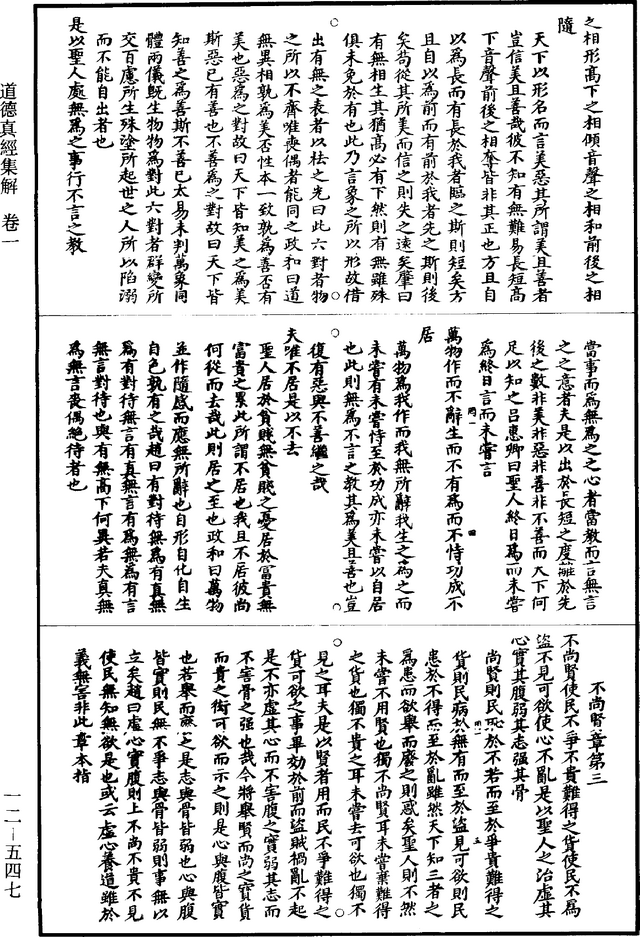 道德真經集解　卷一
一二—五四七
之相形高下之相傾音聲之相和前後之相
隨
天下以形名而言美惡其所謂美且善者
豈信美且善哉彼不知有無難易長短高
下音聲前後之相奪皆非其正也方且自
以為長而有長於我者臨之斯則短矣方
且自以為前而有前於我者先之斯則後
矣苟從其所美而信之則失之遠矣肇曰
有無相生其猶高必有下然則有無雖殊
俱未免於有也此乃言象之所以形故借
出有無之表者以祛之光曰此六對者物
之所以不齊唯喪偶者能同之政和曰道
無異相孰為美否性本一致孰為善否有
美也惡為之對故曰天下皆知美之為美
斯惡已有善也不善為之對故曰天下皆
知善之為善斯不善已太易未判萬象同
體兩儀既生物物為對此六對者群變所
交百慮所生殊塗所起世之人所以陷溺
而不能自出者也
是以聖人處無為之事行不言之教
當事而為無為之之心者當教而言無言
之之意者夫是以出於長短之度離於先
後之數非美非惡非善非不善而天下何
足以知之呂惠卿曰聖人終日為而未嘗
為終日言而未嘗言
萬物作而不辭生而不有為而不恃功成不
居
萬物為我作而我無所辭我生之為之而
未嘗有未嘗恃至於功成亦未嘗以自居
也此則無為不言之教其為美且善也豈
復有惡與不善繼之哉
夫唯不居是以不去
聖人居於貧賤無貧賤之憂居於富貴無
富貴之累此所謂不居也我且不居彼尚
何從而去哉此則居之至也政和曰萬物
並作隨感而應無所辭也自形自化自生
自色孰有之哉趙曰有對待無為有真無
為有對待無言有真無言有為無為有言
無言對待也與有無高下何異若夫真無
為無言喪偶絕待者也
不尚賢章第三
不尚賢使民不爭不貴難得之貨使民不為
盜不見可欲使心不亂是以聖人之治虛其
心實其腹弱其志強其骨
尚賢則民恥於不若而至於爭貴難得之
貨則民病於無有而至於盜見可欲則民
患於不得而至於亂雖然天下知三者之
為患而欲舉而廢之則惑矣聖人則不然
未嘗不用賢也獨不尚賢耳未嘗棄難得
之貨也獨不貴之耳未嘗去可欲也獨不
見之耳夫是以賢者用而民不爭難得之
貨可欲之事畢効於前而盜賊禍亂不起
是不亦虛其心而不害腹之實弱其志而
不害骨之強也哉今將舉賢而尚之寶貨
而貴之衒可欲而示之則是心與腹皆實
也若舉而廢之是志與骨皆弱也心與腹
皆實則民無不爭志與骨皆弱則事無以
立矣趙曰虛心實腹則上不尚不貴不見
使民無知無欲是也或云虛心養道雖於
義無害非此章本指